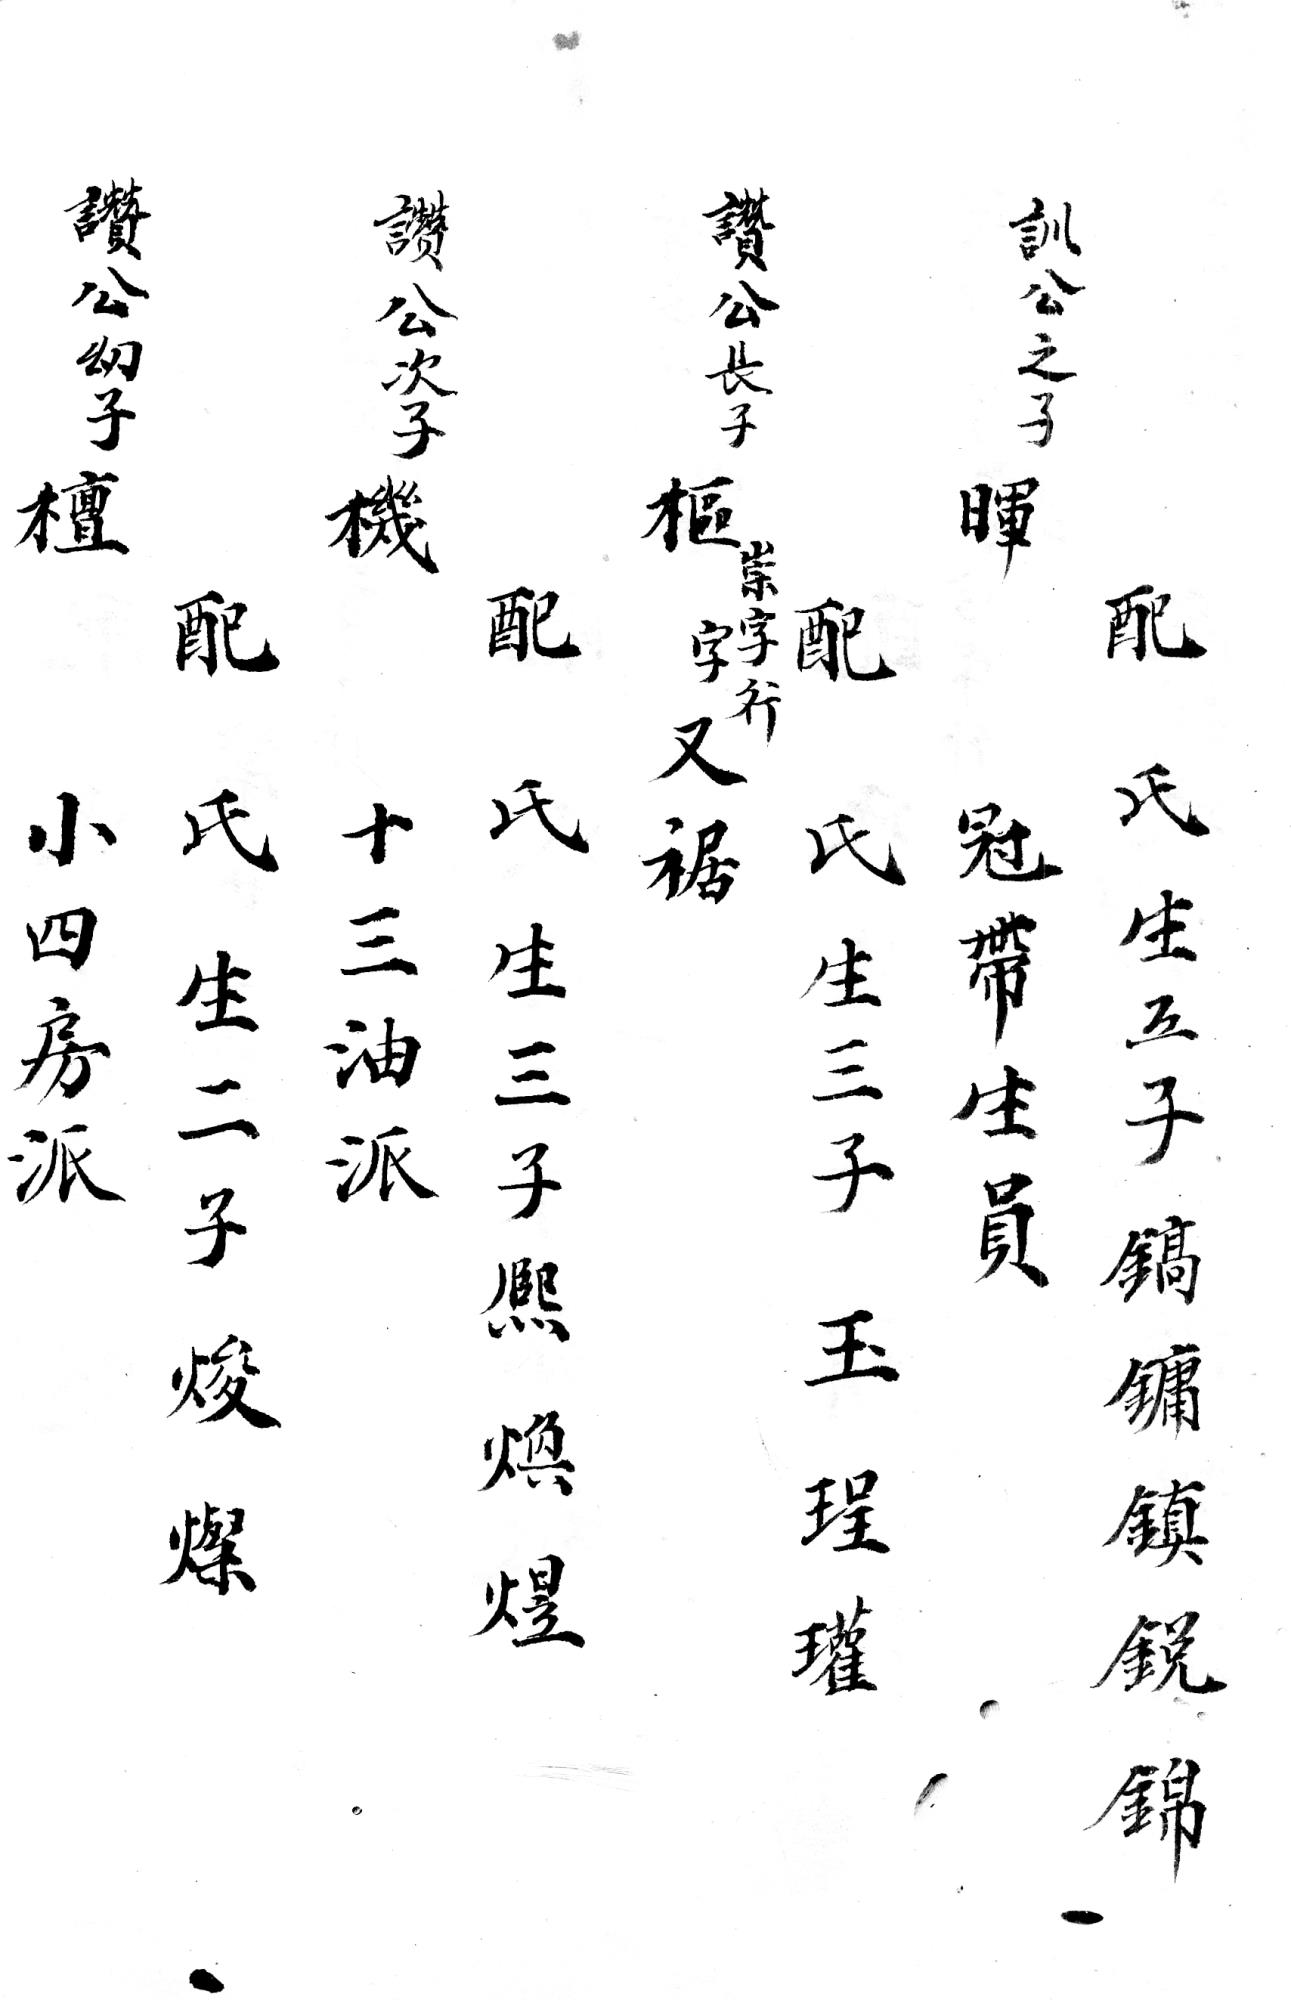 配 氏生五子鎬鏞鎮鋭錦
訓公之子暉 冠帶生員
配 氏生三子 玉珵瓘
讚公長子樞 崇字行
字又裾
配 氏生三子熙煥煜
讚公次子機 十三油派
配 氏生二子焌燦
讚公幼子檀 小四房派